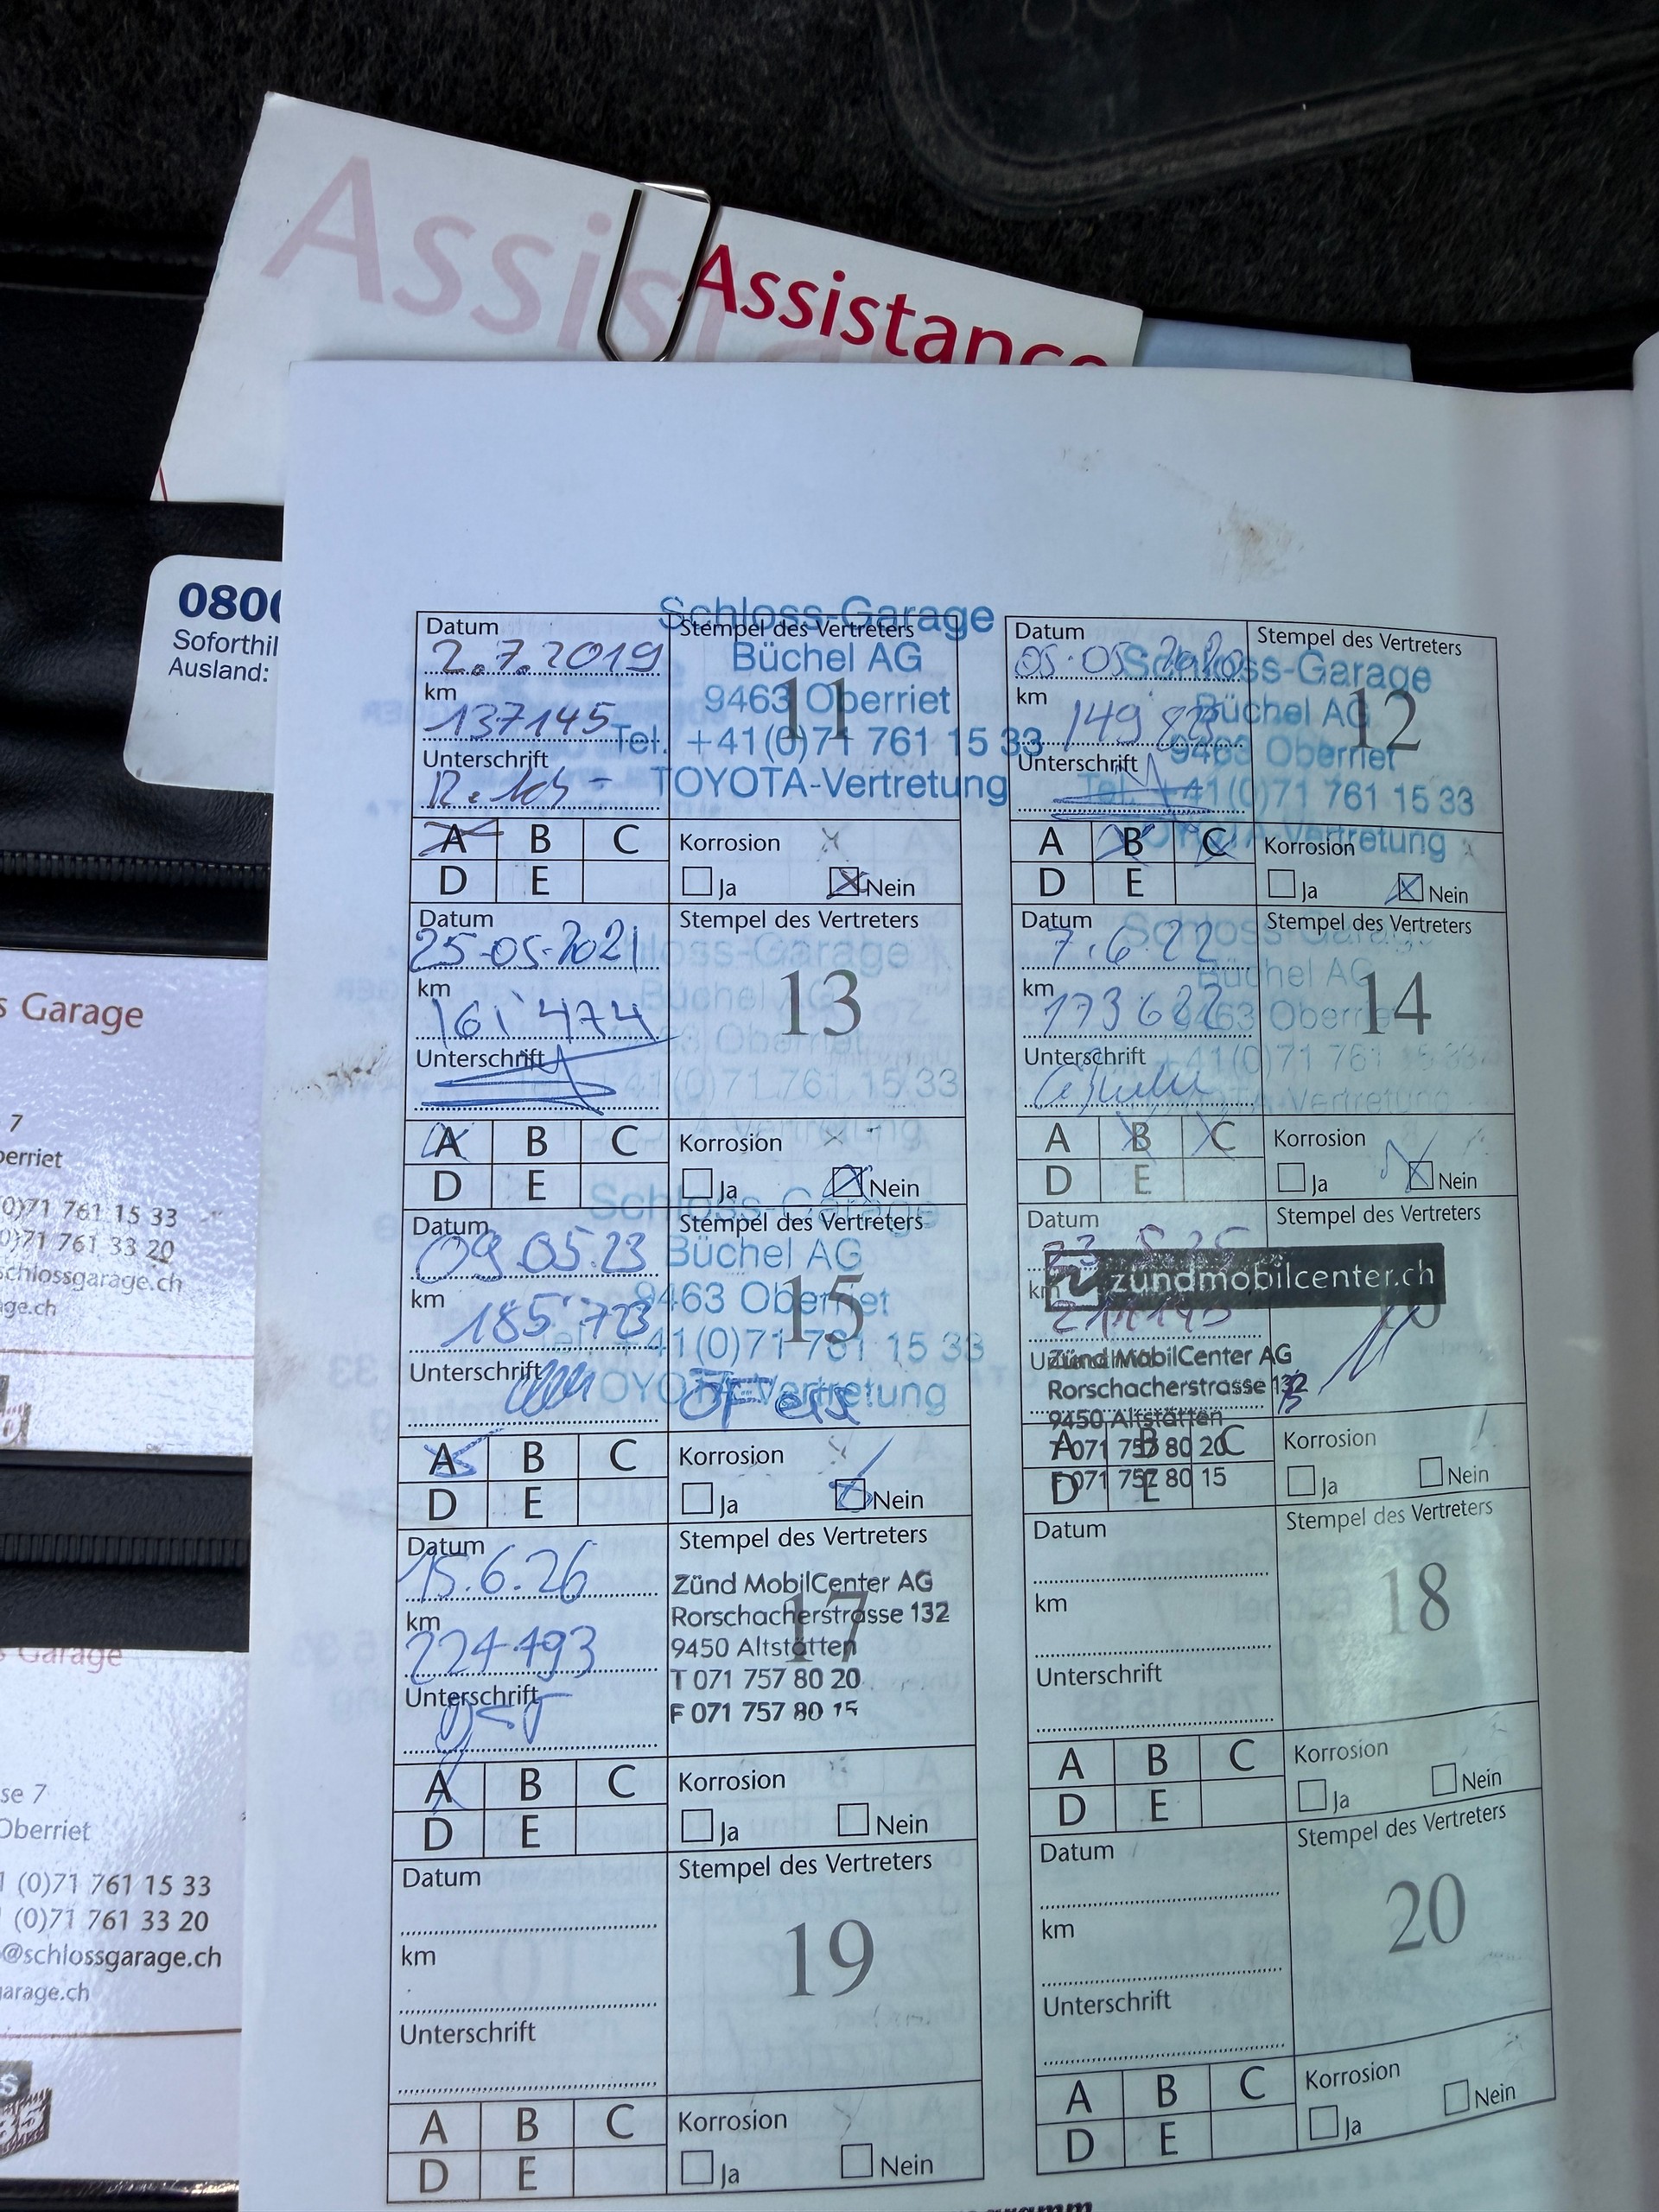 Assistance
Assist
0800
Soforthil
Ausland:
Datum
2.7.2019
km
137145
Unterschrift
Stempel des Vertreters
11
Schloss-Garage
Büchel AG
9463 Oberriet
Tel. +41(0)71 761 15 33
TOYOTA-Vertretung
A B C
D E
Korrosion
Ja Nein
Datum
05.05.2020
km
Unterschrift
Stempel des Vertreters
12
Schloss-Garage
Büchel AG
9463 Oberriet
Tel. +41(0)71 761 15 33
TOYOTA-Vertretung
A B C
D E
Korrosion
Ja Nein
Datum
25.05.2021
km
161'474
Unterschrift
Stempel des Vertreters
13
Schloss-Garage
Büchel AG
9463 Oberriet
+41(0)71 761 15 33
TOYOTA-Vertretung
A B C
D E
Korrosion
Ja Nein
Datum
7.6.22
km
173622
Unterschrift
Stempel des Vertreters
14
Schloss-Garage
Büchel AG
9463 Oberriet
+41(0)71 761 15 33
TOYOTA-Vertretung
A B C
D E
Korrosion
Ja Nein
Datum
09.05.23
km
185'723
Unterschrift
Stempel des Vertreters
15
Schloss-Garage
Büchel AG
9463 Oberriet
Tel. +41(0)71 761 15 33
TOYOTA-Vertretung
A B C
D E
Korrosion
Ja Nein
Datum
km
Unterschrift
Stempel des Vertreters
zündmobilcenter.ch
Zünd MobilCenter AG
Rorschacherstrasse 132
9450 Altstätten
T 071 757 80 20
F 071 757 80 15
A B C
D E
Korrosion
Ja Nein
Datum
15.6.26
km
224.193
Unterschrift
Stempel des Vertreters
17
Zünd MobilCenter AG
Rorschacherstrasse 132
9450 Altstätten
T 071 757 80 20
F 071 757 80 15
A B C
D E
Korrosion
Ja Nein
Datum
km
Unterschrift
Stempel des Vertreters
18
A B C
D E
Korrosion
Ja Nein
Datum
km
Unterschrift
Stempel des Vertreters
19
A B C
D E
Korrosion
Ja Nein
Datum
km
Unterschrift
Stempel des Vertreters
20
A B C
D E
Korrosion
Ja Nein
s Garage
7
berriet
0)71 761 15 33
0)71 761 33 20
schlossgarage.ch
ge.ch
Garage
se 7
Oberriet
(0)71 761 15 33
(0)71 761 33 20
@schlossgarage.ch
garage.ch